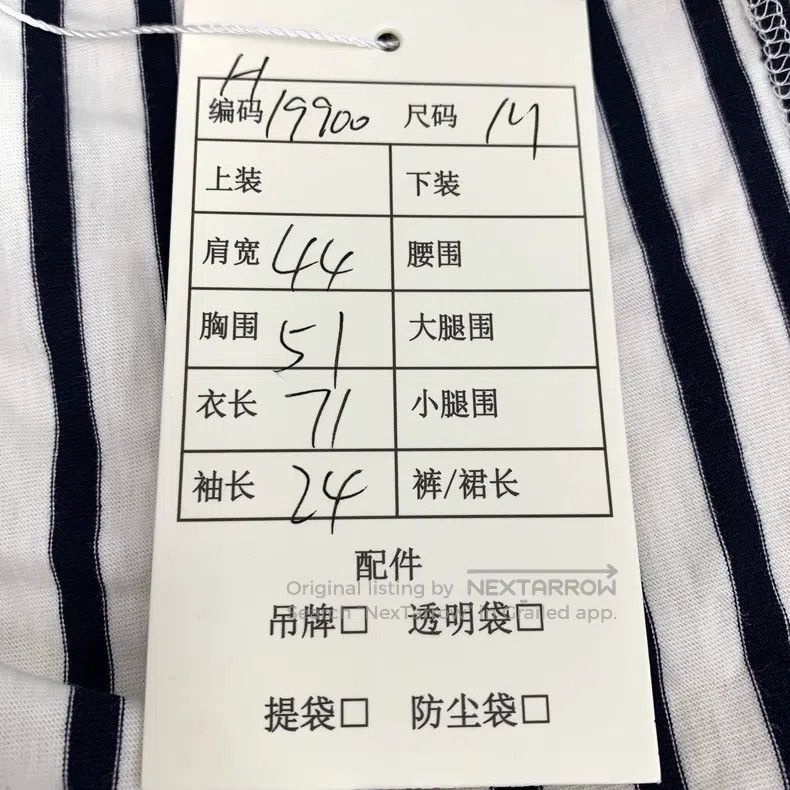 H
编码 19900 尺码 M
上装 下装
肩宽 44 腰围
胸围 51 大腿围
衣长 71 小腿围
袖长 24 裤/裙长
配件
Original listing by NEXTARROW
Search "NexTArrow" in Grailed app.
吊牌□ 透明袋□
提袋□ 防尘袋□